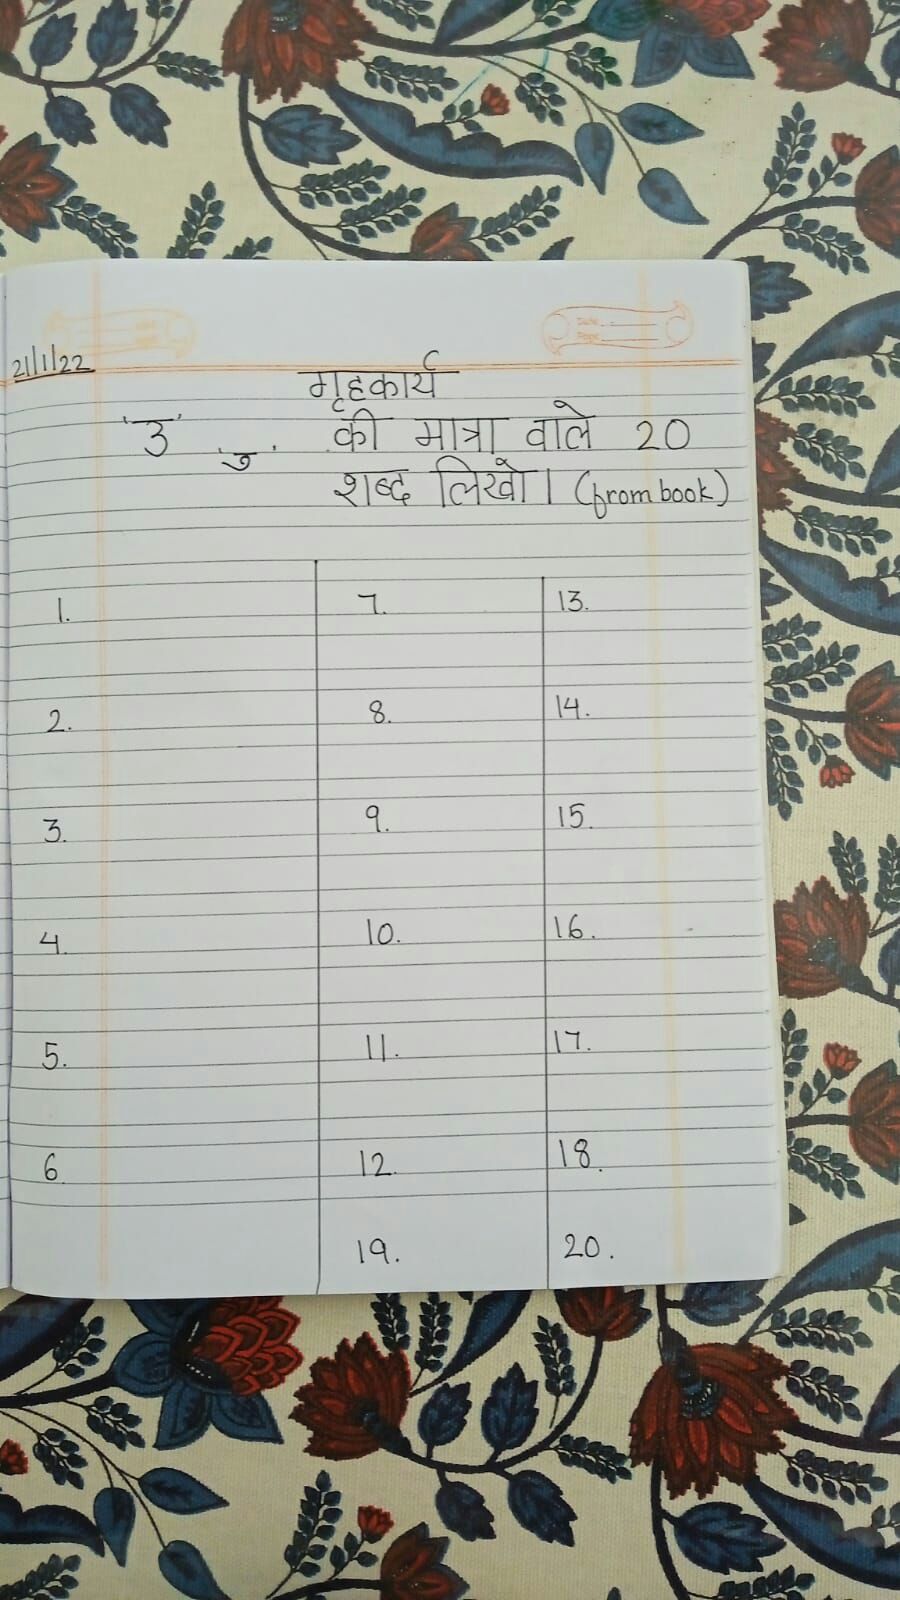 21/1/22
गृहकार्य
'उ' 'ु' की मात्रा वाले 20
शब्द लिखो। (from book)
1. 7. 13.
2. 8. 14.
3. 9. 15.
4. 10. 16.
5. 11. 17.
6 12. 18.
19. 20.